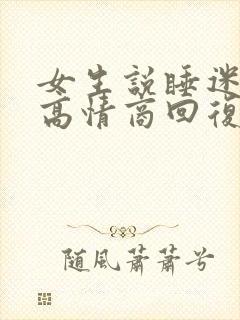 女生説睡迷
高情商回復
随風蕭蕭兮